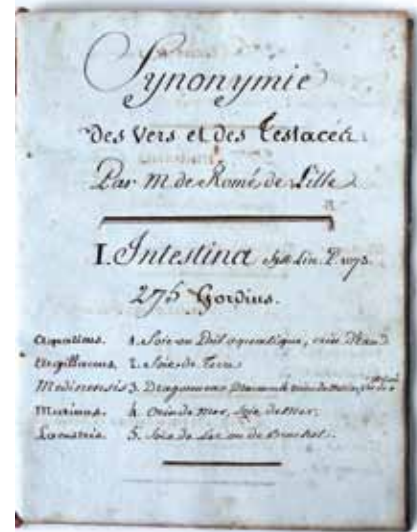 Synonymie
des Vers et des Testacés.
Par M. de Romé de Lille.
I. Intestina Syst. Lin. P. 1075.
275 Gordius.
Aquaticus. 1. Soie ou Poil aquatique, crin d'Eau
Argillaceus. 2. Soie de Terre
Medinensis 3. Dragoneau
Marinus. 4. Crin de Mer, Soie de Mer.
Lacustris. 5. Soie de Lac ou de Brochet.